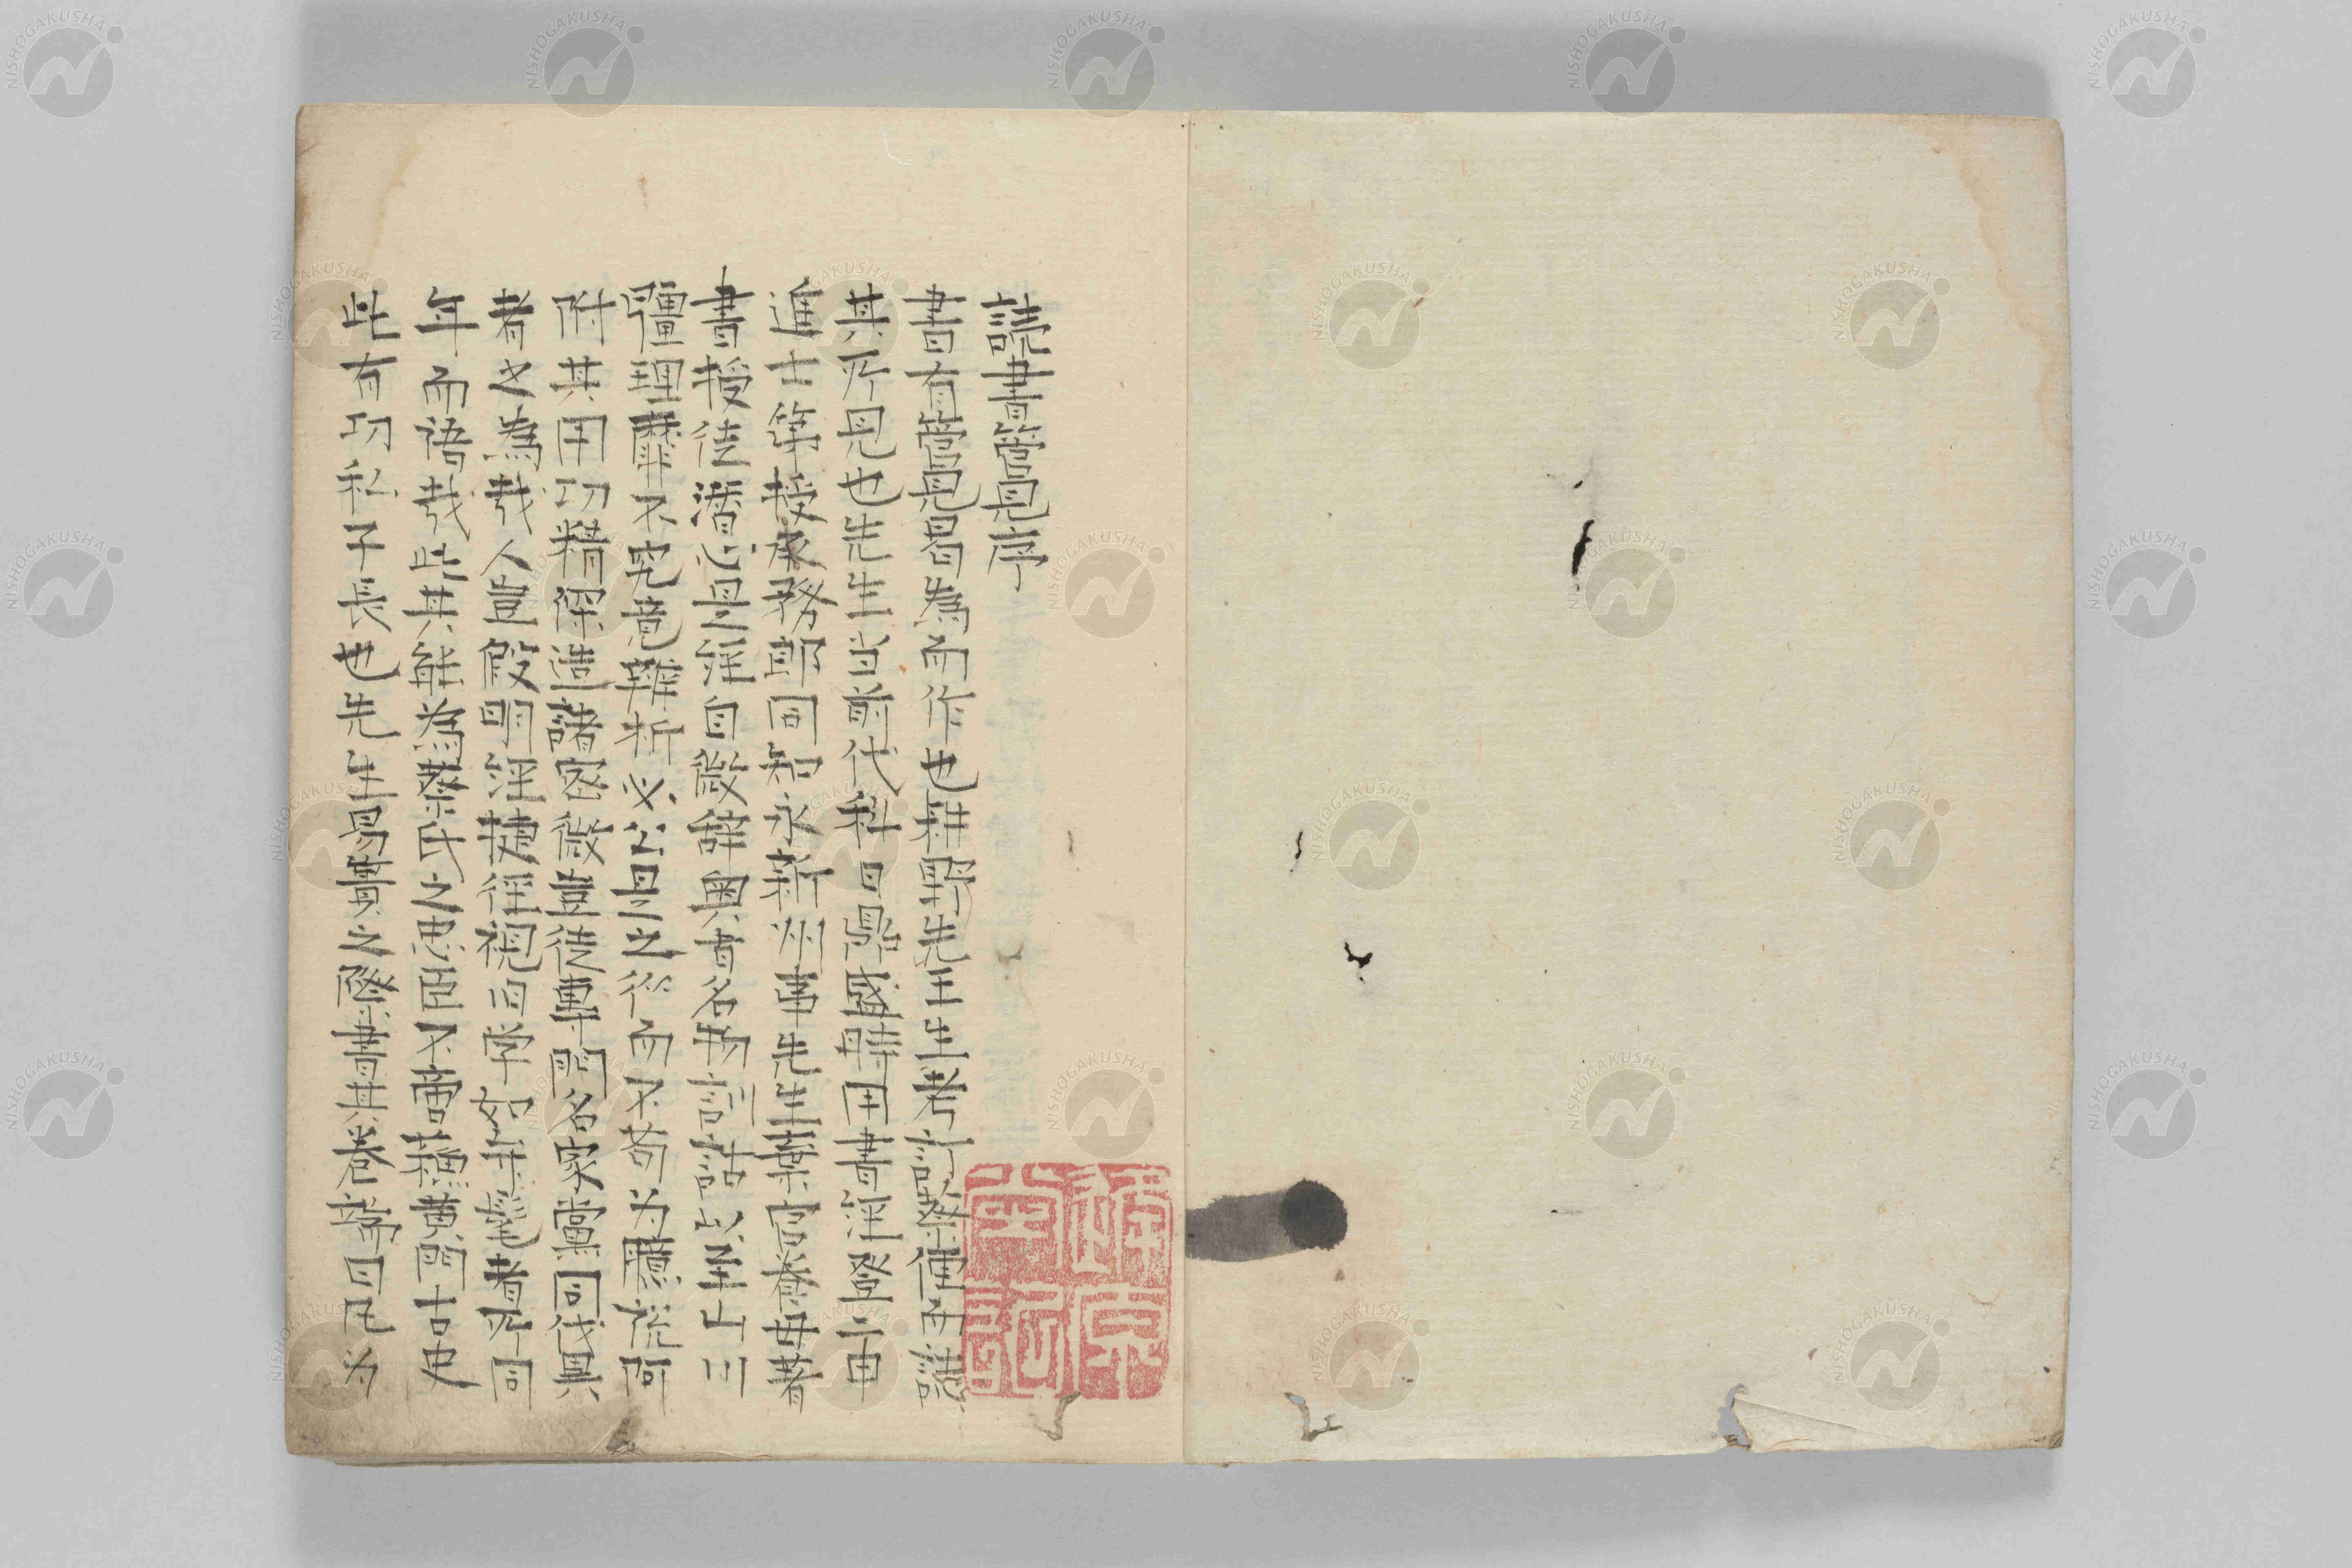 読書管見序
書有管見曷為而作也耕野先王生考訂蔡傳而識
其所見也先生当前代科目鼎盛時用書経登二甲
進士第授承務郎同知永新州事先生棄官養母著
書授徒潜心是経自微辞奥旨名物訓詁以至山川
疆理靡不究竟辯析必公是之従而不苟为臆説阿
附其用功精深造諸密微豈徒専門名家党同伐異
者之為哉人豈假明経捷径視旧学如弁髦者所同
年而語哉此其能為蔡氏之忠臣不啻蘓黄門古史
此有功私子長也先生易簀之際書其卷端曰凡为
NISHOGAKUSHA